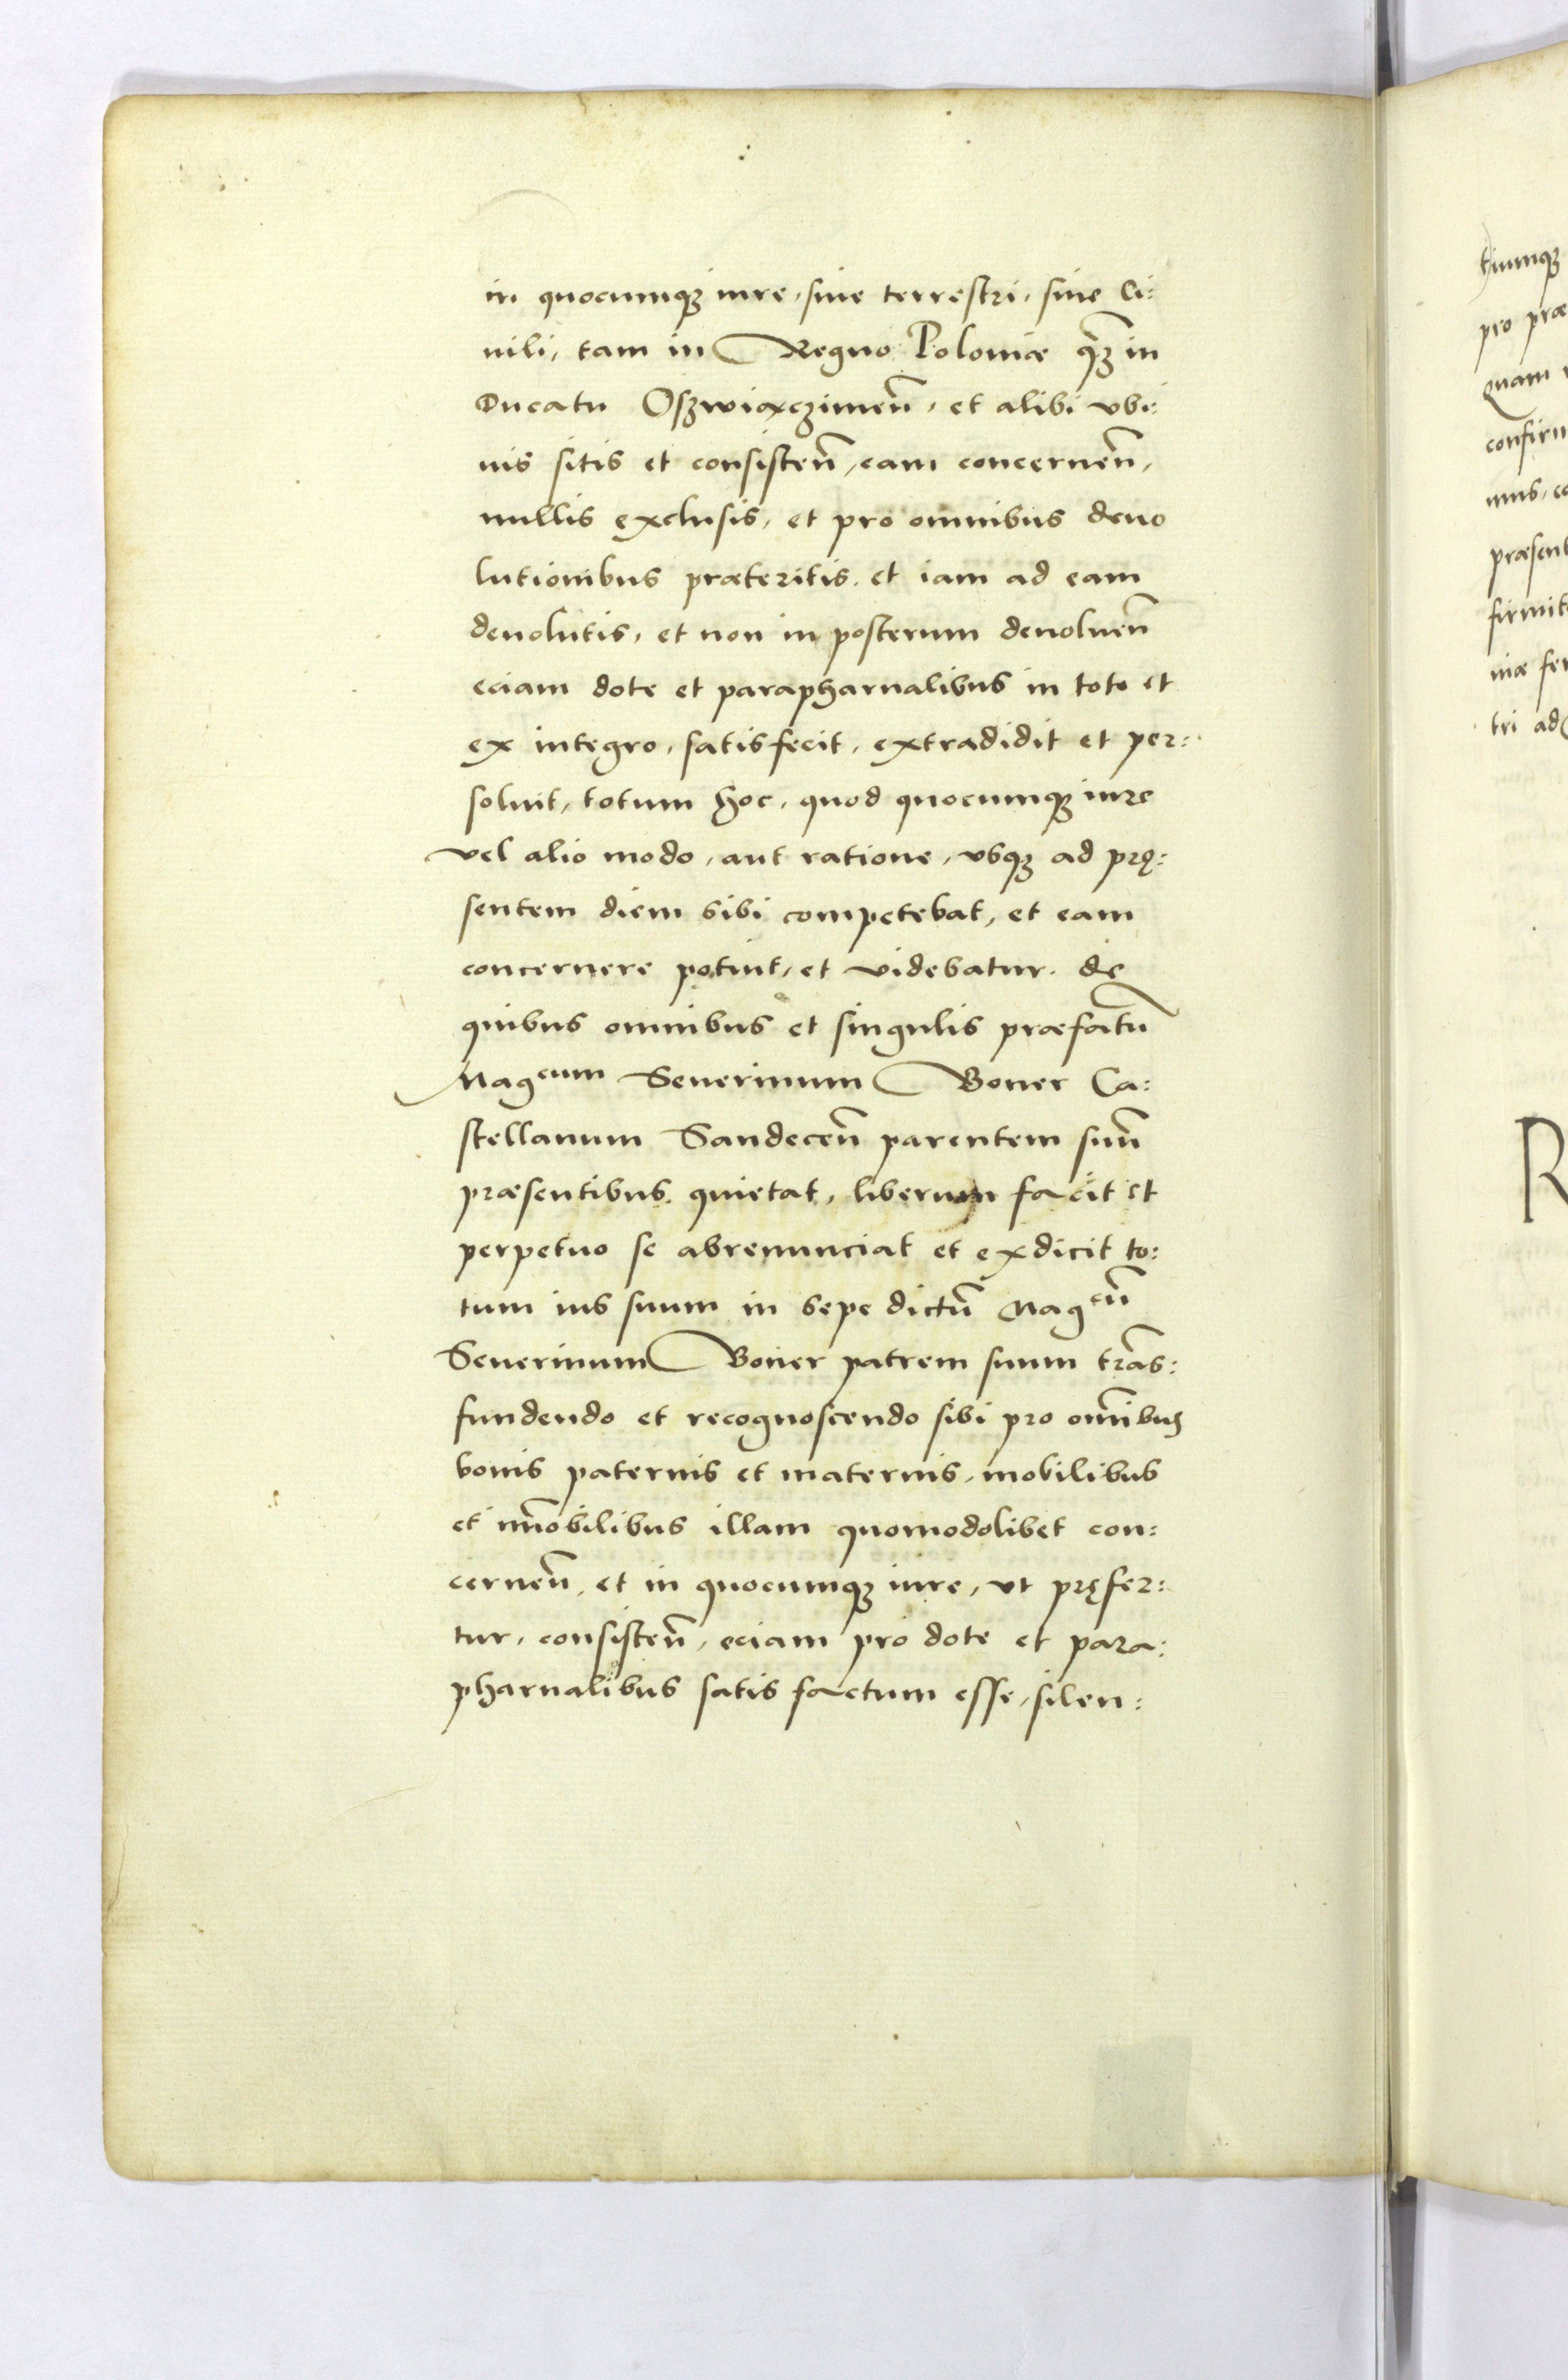 in quocumqȝ iure, siue terrestri, siue Ci:
uili, tam in Regno Poloniæ qȝ̄ in
Ducatu Osȝwiacȝimen̄, et alibi vbi:
uis sitis et consisten̄, eam concernen̄,
nullis exclusis, et pro omnibus deuo
lutionibus præteritis, et iam ad eam
deuolutis, et non in posterum deuoluen̄
eciam dote et parapharnalibus in toto et
ex integro, satisfecit, extradidit et per:
soluit, totum hoc, quod quocumqȝ iure
vel alio modo, aut ratione, vsqȝ ad prę:
sentem diem sibi competebat, et eam
concernere potuit, et videbatur. de
quibus omnibus et singulis præfatū
Magcum Seuerinum Boner Ca:
stellanum Sandecen̄ parentem suū
præsentibus quietat, liberum facit et
perpetuo se abrenunciat et exdicit to:
tum ius suum in sepe dictū Magcū
Seuerinum Boner patrem suum trās:
fundendo et recognoscendo sibi pro om̄ibus
bonis paternis et maternis, mobilibus
et im̄obilibus illam quomodolibet con:
cernen̄, et in quocumqȝ iure, vt pręfer:
tur, consisten̄, eciam pro dote et para:
pharnalibus satis factum esse, silen:
tiumqȝ
pro præ
quam
confirm
mus, co
præsent
firmit
niæ fer
tri ad
R